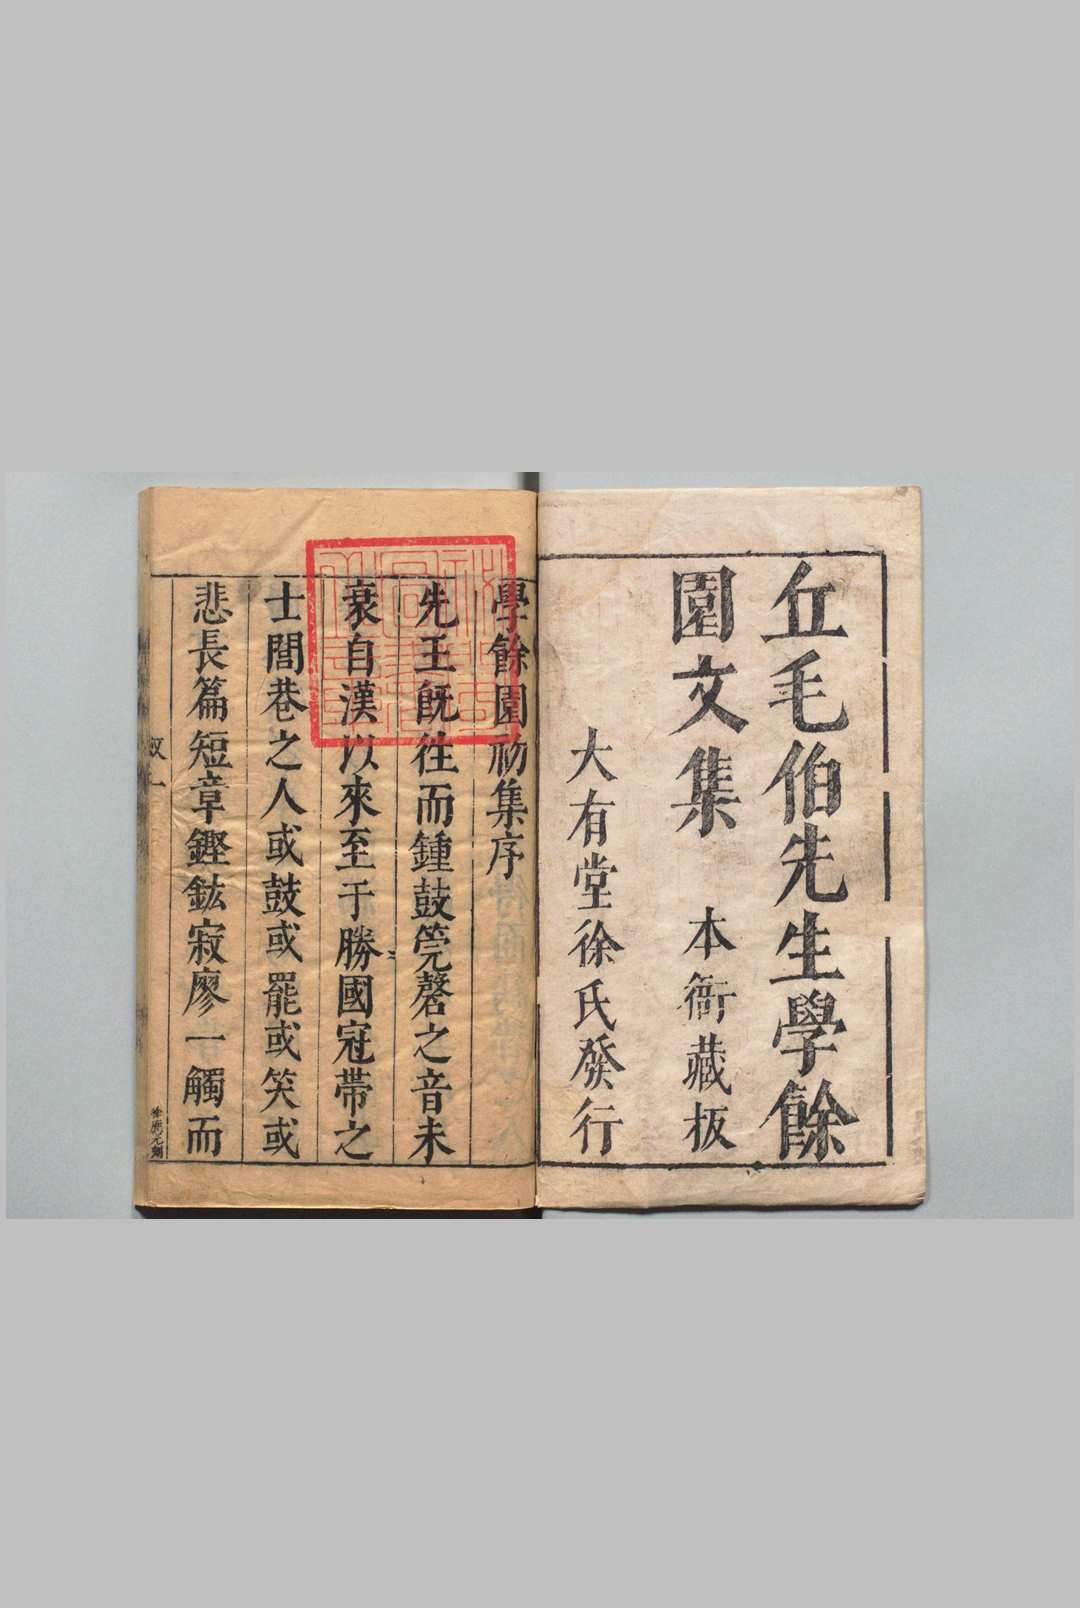 丘毛伯先生學餘
園文集 本衙藏板
大有堂徐氏發行
學餘園初集序
先王旣往而鍾鼓筦磬之音未
衰自漢以來至于勝國冠帶之
士閭巷之人或鼓或罷或笑或
悲長篇短章鏗鋐寂寥一觸而
叙 一